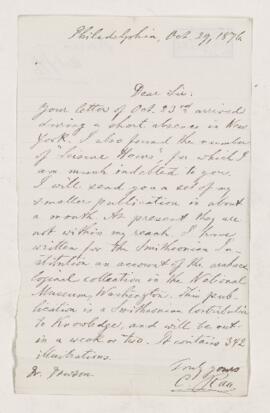 Philadelphia, Oct. 29, 1876
Dear Sir.
Your letter of Oct. 23rd arrived
during a short absence in New
York. I also found the number
of "Science News", for which I
am much indebted to you.
I will send you a set of my
smaller publication in about
a month. At present they are
not within my reach. I have
written for the Smithsonian In-
stitution an account of the archaeo-
logical collection in the National
Museum, Washington. This pub-
lication is a Smithsonian Contribution
to Knowledge, and will be out
in a week or two. It contains 342
illustrations.
Truly yours
C. Rau.